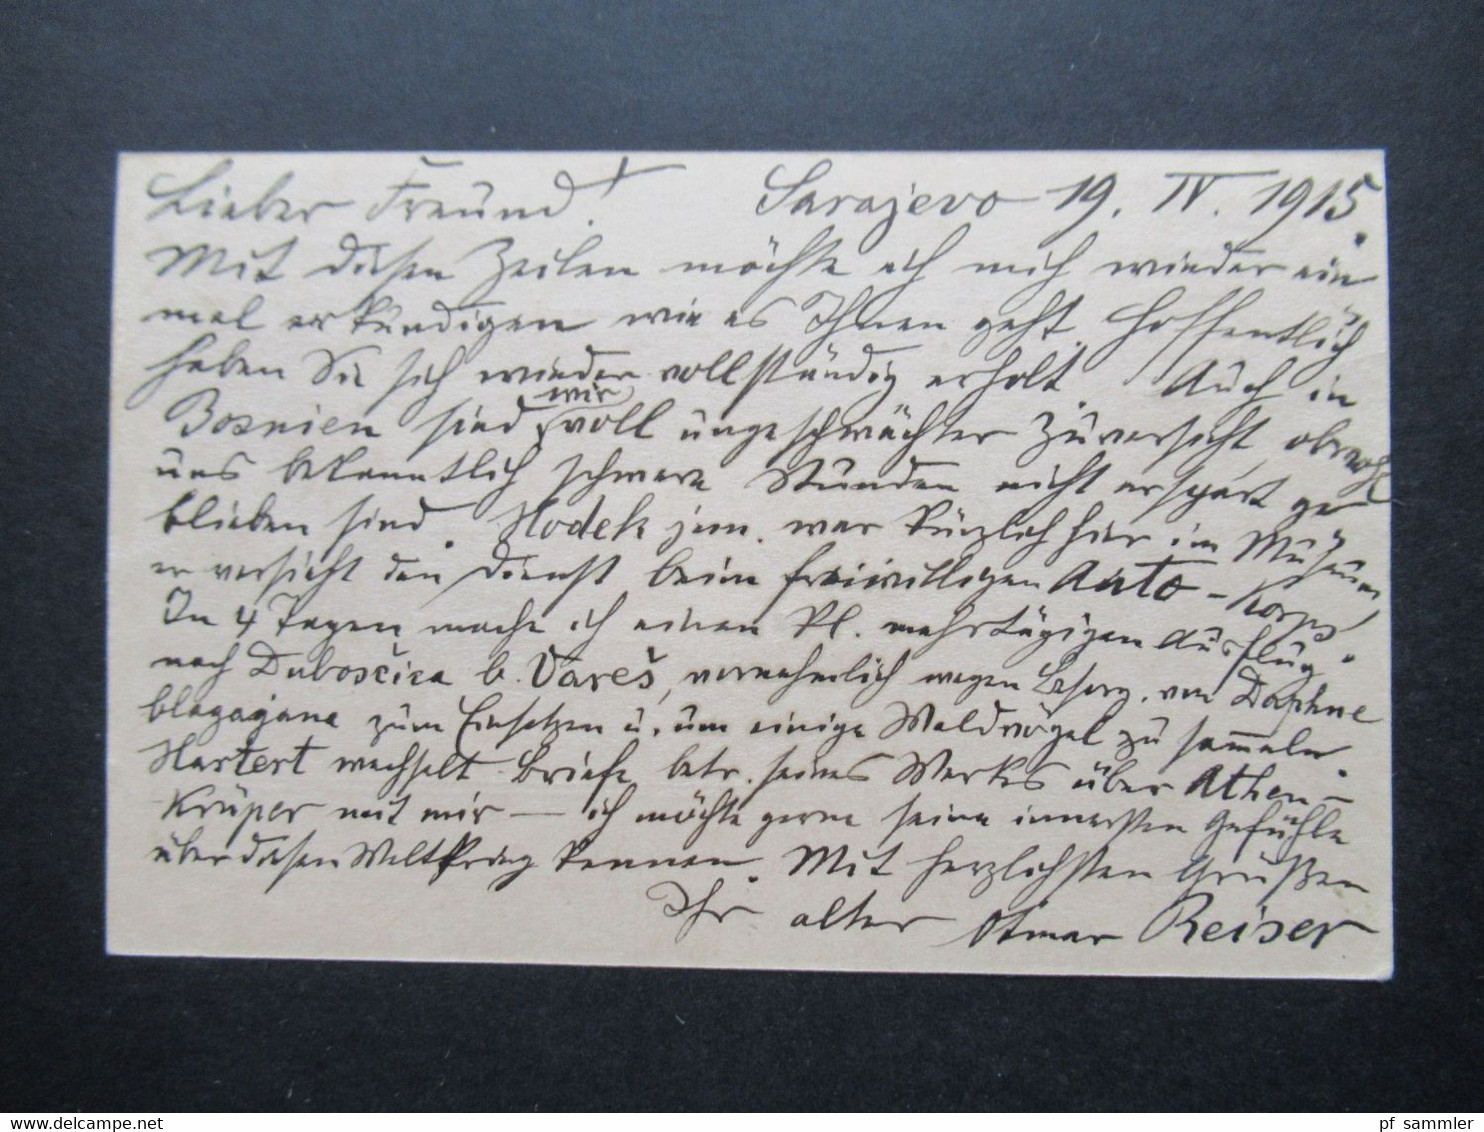 Lieber Freund! Sarajevo 19. IV. 1915.
Mit diesen Zeilen möchte ich mich wieder ein
mal erkundigen wie es Ihnen geht. Hoffentlich
haben Sie sich wieder vollständig erholt. Auch in
Bosnien sind wir voll ungeschwächter Zuversicht, obwohl
uns bekanntlich schwere Stunden nicht erspart ge
blieben sind. Hodek jun. war kürzlich hier im Museum,
er versieht den Dienst beim freiwilligen Auto-Korps.
In 4 Tagen mache ich einen kl. mehrtägigen Ausflug
nach Duboščica b. Vareš, vornehmlich wegen Besorg. von Daphne
blagayana zum Einsetzen u. um einige Waldvögel zu sammeln.
Hartert wechselt Briefe betr. seines Werkes über Athen-
Krüper mit mir — ich möchte gerne seine innersten Gefühle
über diesen Weltkrieg kennen. Mit herzlichsten Grüßen
Ihr alter Otmar Reiser
pf_sammler